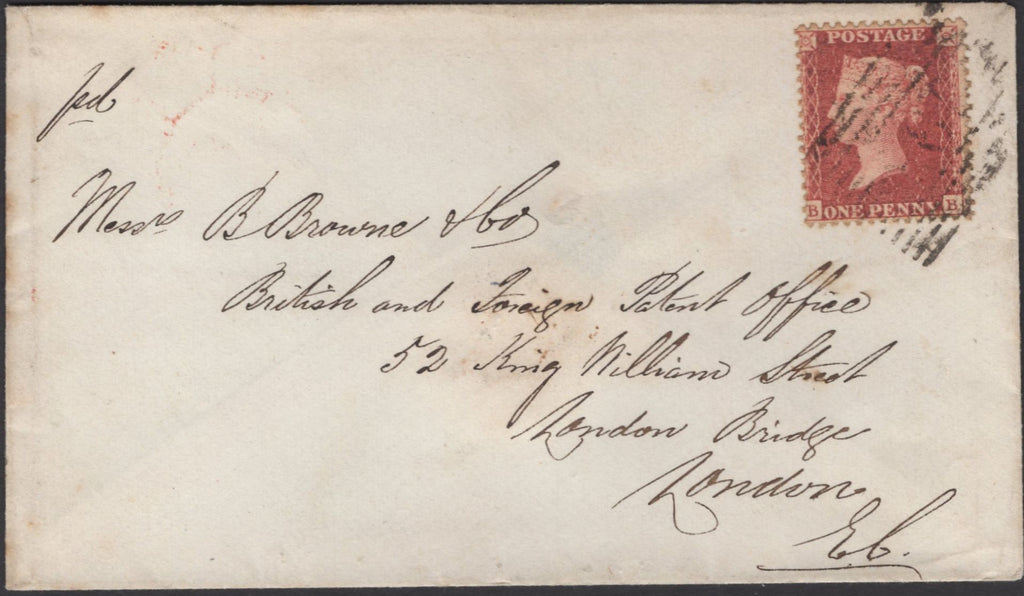 POSTAGE
B ONE PENNY B
pd
Messrs B Browne & Co
British and Foreign Patent Office
52 King William Street
London Bridge
London
E.C.